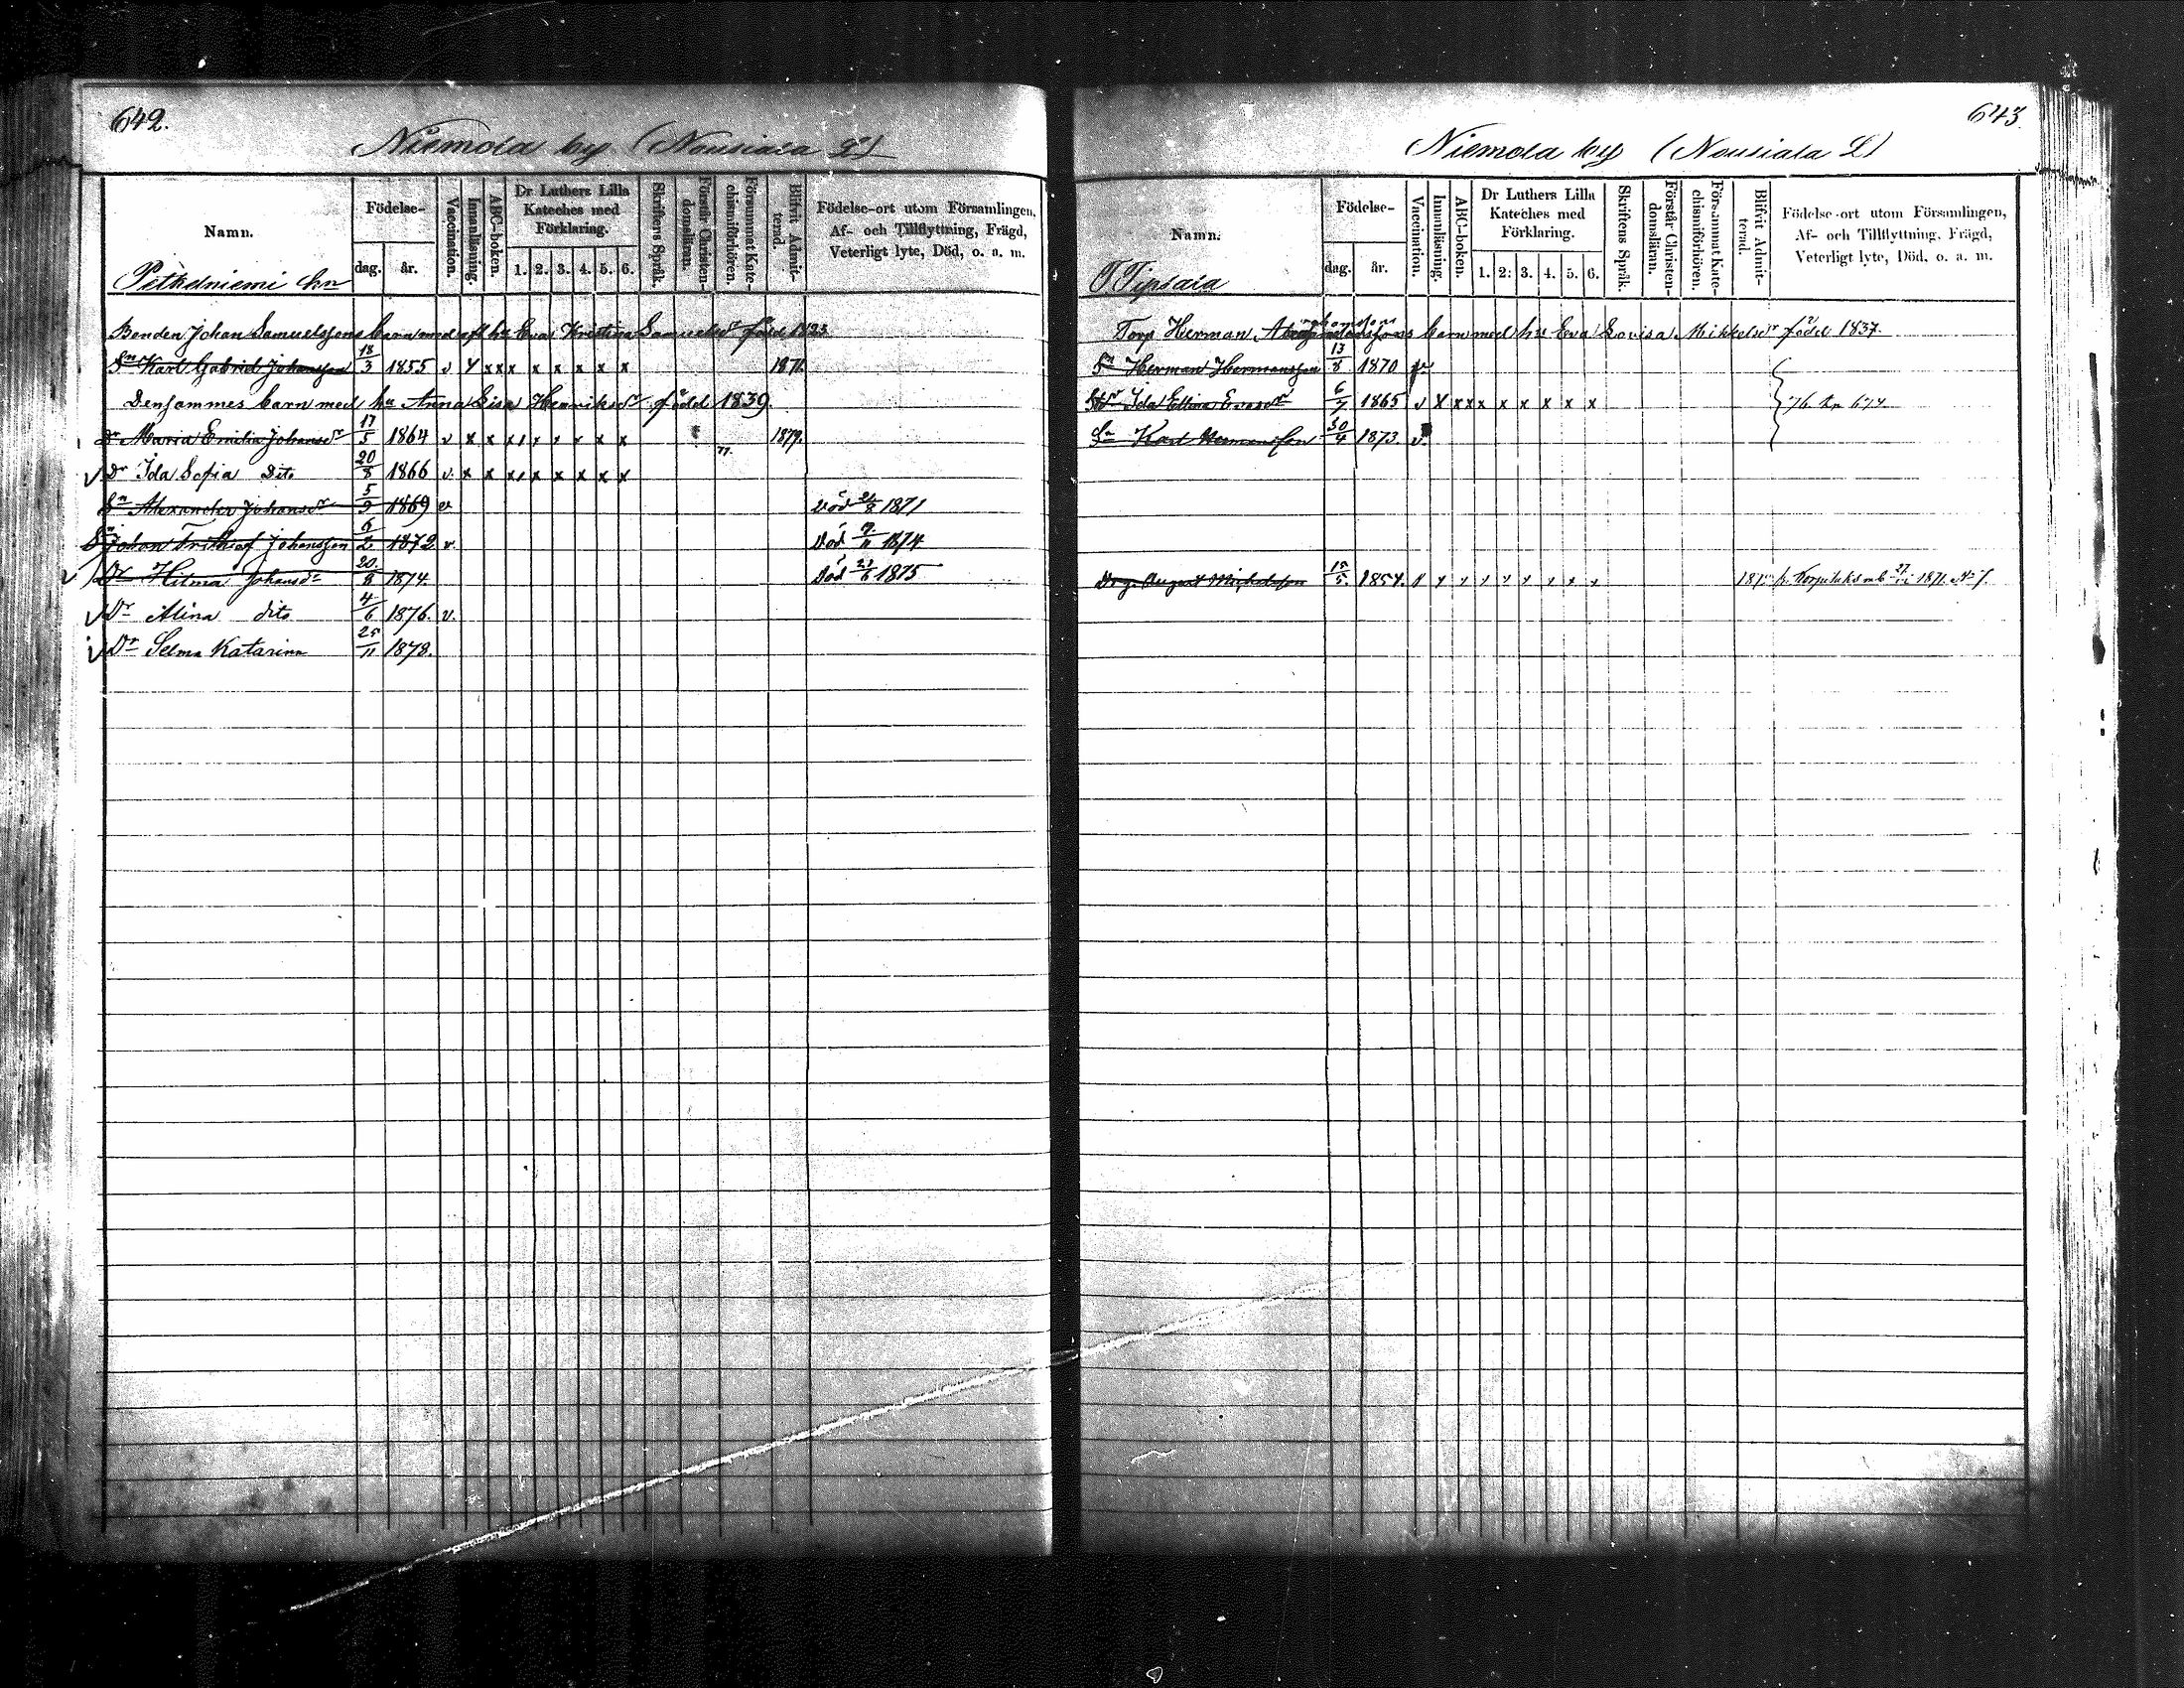 642.
Niemola by (Nousiala L)
Namn.
Födelse-
dag. år.
Vaccination.
Innanläsning.
ABC-boken.
Dr Luthers Lilla Kateches med Förklaring.
1. 2. 3. 4. 5. 6.
Skriftens Språk.
Förstår Christendomsläran.
Försummat Katechismiförhören.
Blifvit Admitterad.
Födelse-ort utom Församlingen,
Af- och Tillflyttning, Frägd,
Veterligt lyte, Död, o. a. m.
Petkelniemi hn
Bonden Johan Samuelssons barn med afl hu Eva Kristina Samuelsdr född 1823
Sn Karl Gabriel Johansson 18/3 1855 v Y x x x x x x x x 1871.
Densammes barn med hu Anna Lisa Henriksdr född 1839.
Dr Maria Emilia Johansdr 17/5 1864 v x x x x x x x x n. 1879.
v Dr Ida Sofia Dito 20/8 1866 v. x x x x x x x x
Sn Alexander Johansson 5/9 1869 v Död 21/8 1871
Sn Johan Frithiof Johansson 6/2 1872 v. Död 9/11 1874
v Dr Hilma Johansdr 20/8 1874. Död 21/6 1875
v Dr Alina dito 4/6 1876. v.
v Dr Selma Katarina 25/11 1878.
643
Niemola by (Nousiala L)
Namn.
Födelse-
dag. år.
Vaccination.
Innanläsning.
ABC-boken.
Dr Luthers Lilla Kateches med Förklaring.
1. 2. 3. 4. 5. 6.
Skriftens Språk.
Förstår Christendomsläran.
Försummat Katechismiförhören.
Blifvit Admitterad.
Födelse-ort utom Församlingen,
Af- och Tillflyttning, Frägd,
Veterligt lyte, Död, o. a. m.
T Tipiala
Torp Herman barn med hu Eva Lovisa Mikkelsdr född 1837.
Sn Herman Hermansson 13/8 1870
Ida Ellina Evasdr 6/7 1865 v X x x x x x x x x 76 674
Sn Karl Hermansson 30/4 1873 v.
Drg. August Michelsson 15/5 1854. 1871 N